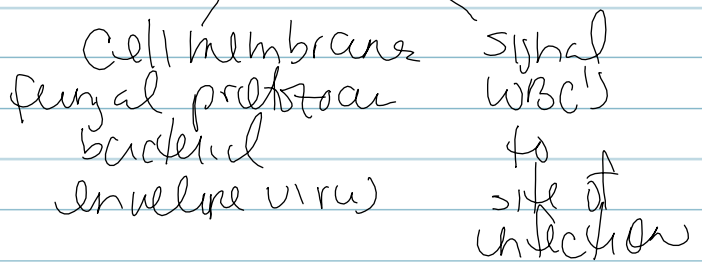 cell membrane
fungal protozoan
bacterial
envelope virus
signal
WBC's
to
site of
infection